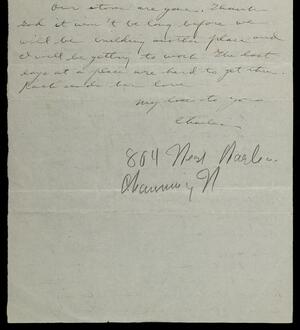 Our stores are gone. Thank
God it won't be long before we
will be building another place and
I will be getting to work. The last
days at a place are hard to get thru.
love
My love to you
Charles
804 West